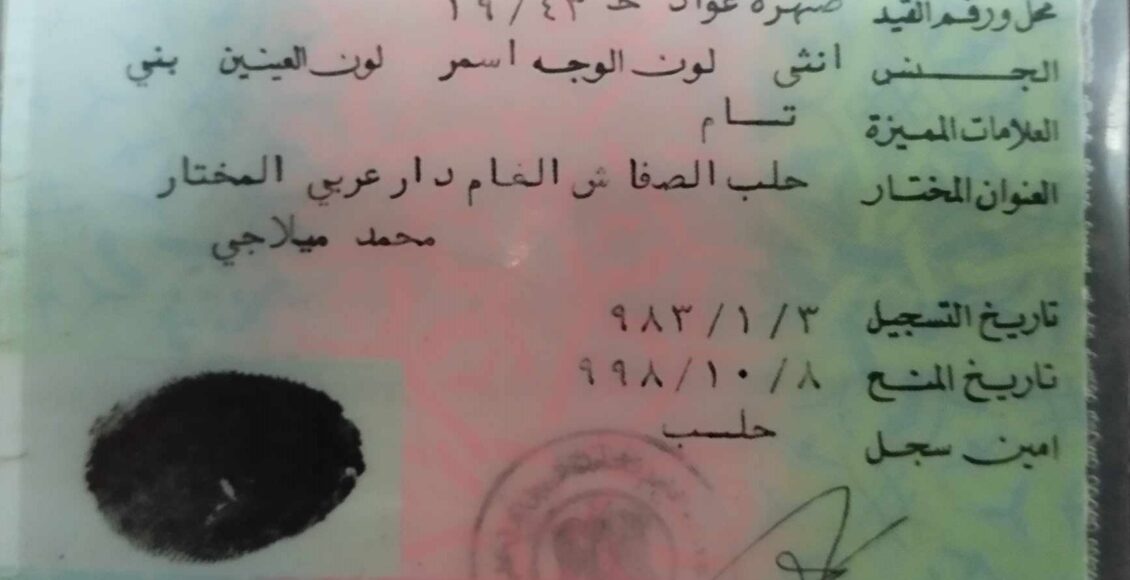 محل ورقم القيد صهرة عواد خ ١٩/٤٣
الجنس انثى لون الوجه اسمر لون العينين بني
العلامات المميزة تام
العنوان المختار حلب الصفا ش الخام دار عربي المختار
محمد ميلاجي
تاريخ التسجيل ٩٨٣/١/٣
تاريخ المنح ٩٩٨/١٠/٨
امين سجل حلب